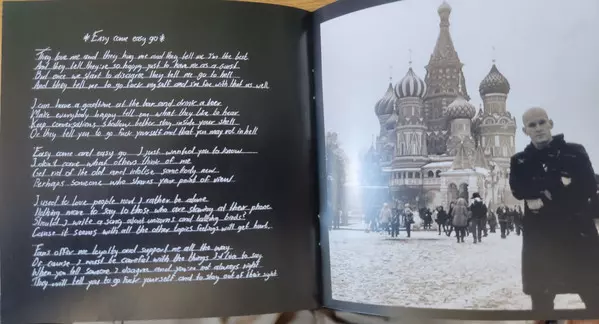 *Easy come easy go*
They love me and they hug me and they tell me I'm the best
And they tell they're so happy just to have me as a guest
But once we start to disagree they tell me go to hell
And they tell me to go fuck myself and I'm fine with that as well
I can have a goodtime at the bar and drink a beer
Make everybody happy tell em what they like to hear
Keep conversations shallow better stay inside your shell
Or they tell you to go fuck yourself and that you may rot in hell
Easy come and easy go I just wanted you to know
I don't care what others think of me
Get rid of the old and idolise somebody new
Perhaps someone who shares your point of view
I used to love people now I rather be alone
Nothing more to say to those who are staring at their phone
Should I write a song about unicorns and talking birds?
Cause it seems with all the other topics feelings will get hurt
Fans offer me loyalty and support me all the way
Of course I must be careful with the things I'd like to say
When you tell someone I disagree and you're not always right
They will tell you to go fuck yourself and to stay out of their sight